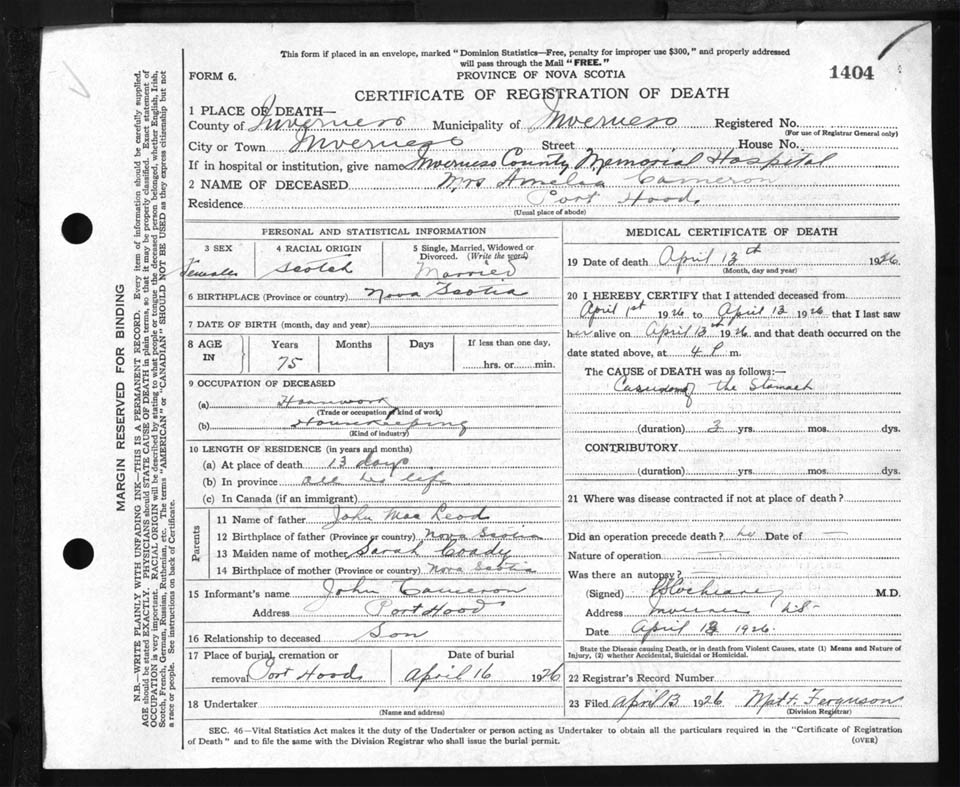 This form if placed in an envelope, marked "Dominion Statistics—Free, penalty for improper use $300," and properly addressed
will pass through the Mail "FREE."
FORM 6.
PROVINCE OF NOVA SCOTIA
1404
CERTIFICATE OF REGISTRATION OF DEATH
1 PLACE OF DEATH—
County of Inverness Municipality of Inverness Registered No.
(For use of Registrar General only)
City or Town Inverness Street House No.
If in hospital or institution, give name Inverness County Memorial Hospital
2 NAME OF DECEASED Mrs Amelia Cameron
Residence Port Hood
(Usual place of abode)
PERSONAL AND STATISTICAL INFORMATION
3 SEX 4 RACIAL ORIGIN 5 Single, Married, Widowed or
Divorced. (Write the word)
Female Scotch Married
6 BIRTHPLACE (Province or country) Nova Scotia
7 DATE OF BIRTH (month, day and year)
8 AGE IN Years Months Days If less than one day,
75 hrs. or min.
9 OCCUPATION OF DECEASED
(a)
(Trade or occupation / kind of work)
(b) Housekeeping
(Kind of industry)
10 LENGTH OF RESIDENCE (in years and months)
(a) At place of death 13 days
(b) In province all his life
(c) In Canada (if an immigrant)
Parents
11 Name of father John Mac Leod
12 Birthplace of father (Province or country) Nova Scotia
13 Maiden name of mother Sarah Coady
14 Birthplace of mother (Province or country) Nova Scotia
15 Informant's name John Cameron
Address Port Hood
16 Relationship to deceased Son
17 Place of burial, cremation or Date of burial
removal Port Hood April 16 1926
18 Undertaker
(Name and address)
MEDICAL CERTIFICATE OF DEATH
19 Date of death April 13th 1926
(Month, day and year)
20 I HEREBY CERTIFY that I attended deceased from
April 1st 1926 to April 13 1926 that I last saw
her alive on April 13th 1926 and that death occurred on
date stated above, at 4 P m.
The CAUSE of DEATH was as follows:—
of the Stomach
(duration) 3 yrs. mos. dys.
CONTRIBUTORY
(duration) yrs. mos. dys.
21 Where was disease contracted if not at place of death?
Did an operation precede death? no Date of —
Nature of operation —
Was there an autopsy? —
(Signed) Cochrane M.D.
Address Inverness N.S.
Date April 13 1926.
State the Disease causing Death, or in death from Violent Causes, state (1) Means and Nature of
Injury, (2) whether Accidental, Suicidal or Homicidal.
22 Registrar's Record Number
23 Filed April 13 1926 Matt. Ferguson
(Division Registrar)
SEC. 46—Vital Statistics Act makes it the duty of the Undertaker or person acting as Undertaker to obtain all the particulars required in the "Certificate of Registration
of Death" and to file the same with the Division Registrar who shall issue the burial permit.
(OVER)
MARGIN RESERVED FOR BINDING
N.B.—WRITE PLAINLY WITH UNFADING INK—THIS IS A PERMANENT RECORD. Every item of information should be carefully supplied.
AGE should be stated EXACTLY. PHYSICIANS should STATE CAUSE OF DEATH in plain terms, so that it may be properly classified. Exact statement of
OCCUPATION is very important. RACIAL ORIGIN will be described by stating to what people or tongue the deceased person belonged, whether English, Irish,
Scotch, French, German, Russian, Ruthenian, etc. The terms "AMERICAN" or "CANADIAN" SHOULD NOT BE USED as they express citizenship but not
a race or people. See instructions on back of Certificate.